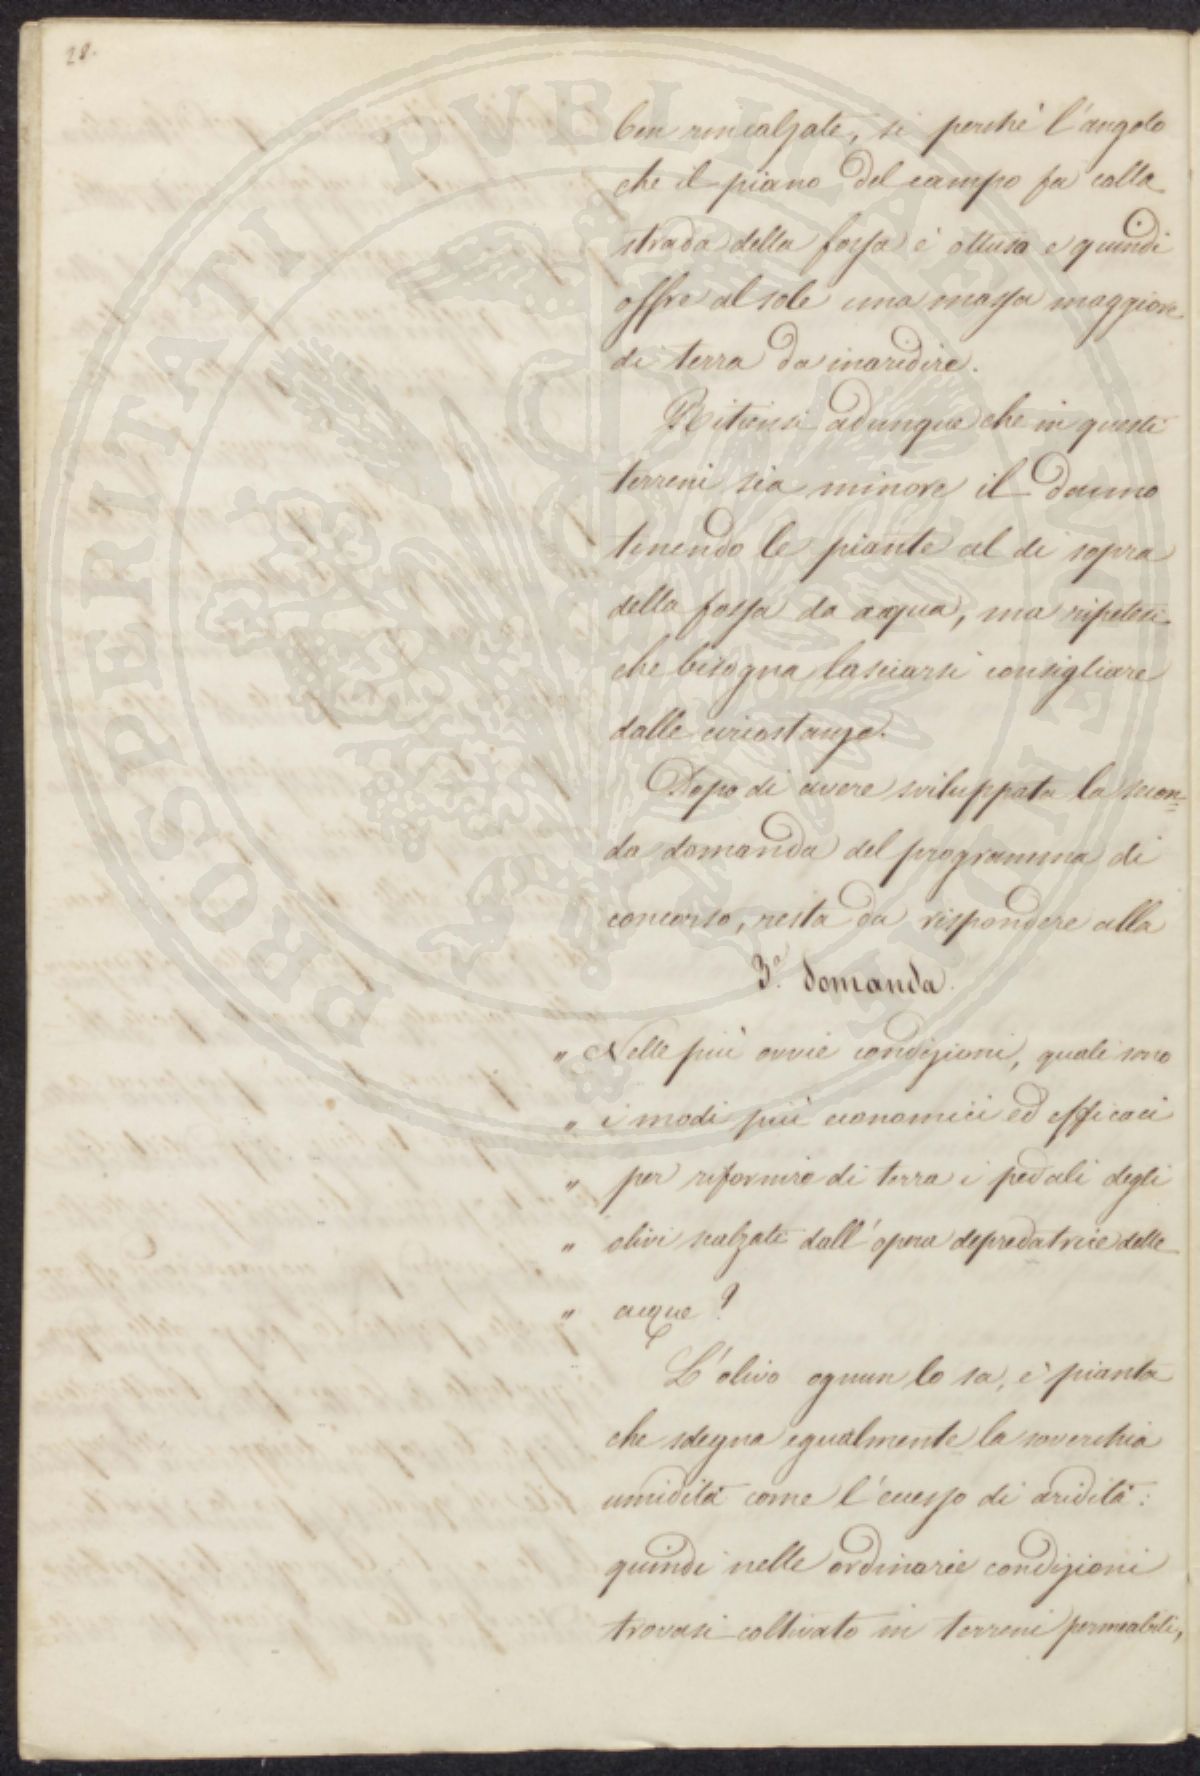 28.
ben rincalzate, si perchè l'angolo
che il piano del campo fa colla
strada della fossa è ottuso e quindi
offre al sole una massa maggiore
di terra da inaridire.
Ritiensi adunque che in questi
terreni sia minore il danno
tenendo le piante al di sopra
della fossa da acqua, ma ripetesi
che bisogna lasciarsi consigliare
dalle circostanze.
Dopo di avere sviluppata la secon=
da domanda del programma di
concorso, resta da rispondere alla
3.a domanda.
" Nelle più ovvie condizioni, quali sono
" i modi più economici ed efficaci
" per rifornire di terra i pedali degli
" olivi scalzati dall'opera depredatrice delle
" acque?
L'olivo ognun lo sa, è pianta
che sdegna egualmente la soverchia
umidità come l'eccesso di aridità:
quindi nelle ordinarie condizioni
trovasi coltivato in terreni permeabili,
PROSPERITATI PVBLICAE